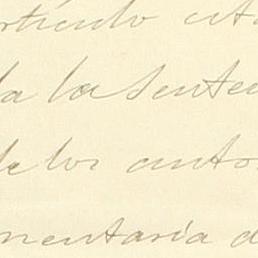 rtículo cita
da la senten
de los autos
mentaria d